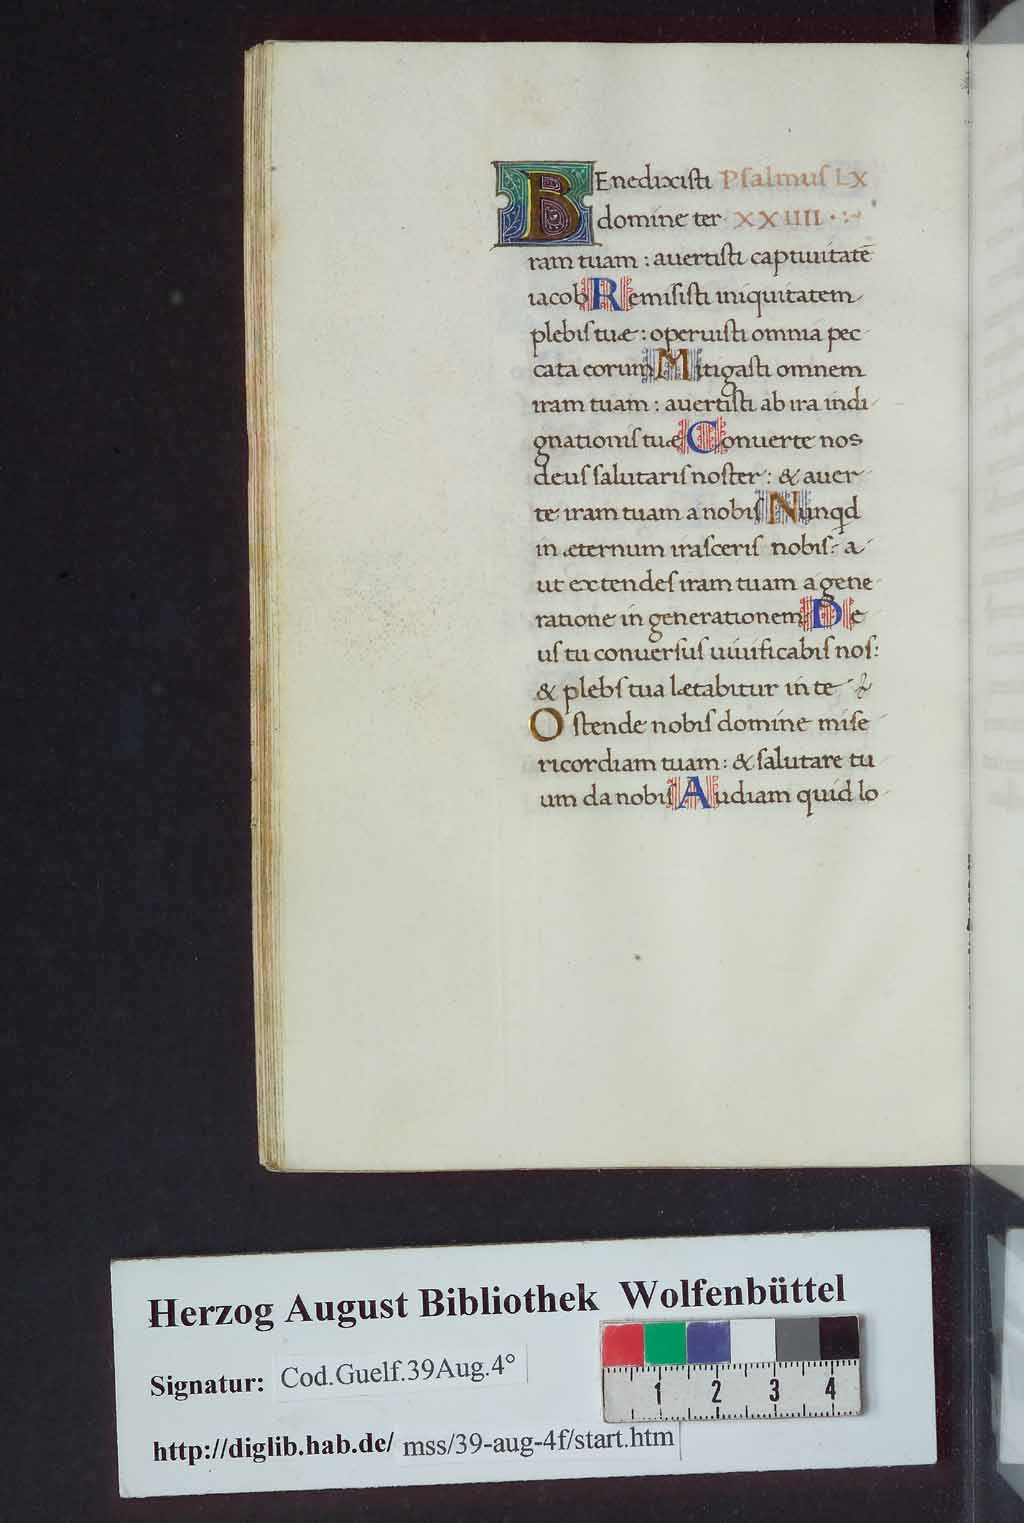 BEnedixiſti Pſalmuſ LX
domine ter XXIIII · :~
ram tuam : auertiſti captiuitatē
iacob Remiſiſti iniquitatem
plebiſ tuæ : operuiſti omnia pec
cata eorum Mitigaſti omnem
iram tuam : auertiſti ab ira indi
gnationiſ tuæ Conuerte nos
deuſ ſalutariſ noſter : & auer
te iram tuam a nobiſ Nunqd
in æternum iraſceriſ nobiſ : a
ut extendeſ iram tuam a gene
ratione in generationem De
uſ tu conuerſuſ uiuificabiſ noſ :
& plebſ tua lætabitur in te
Oſtende nobiſ domine miſe
ricordiam tuam : & ſalutare tu
um da nobiſ Audiam quid lo
Herzog August Bibliothek Wolfenbüttel
Signatur: Cod.Guelf.39Aug.4°
http://diglib.hab.de/ mss/39-aug-4f/start.htm
1 2 3 4